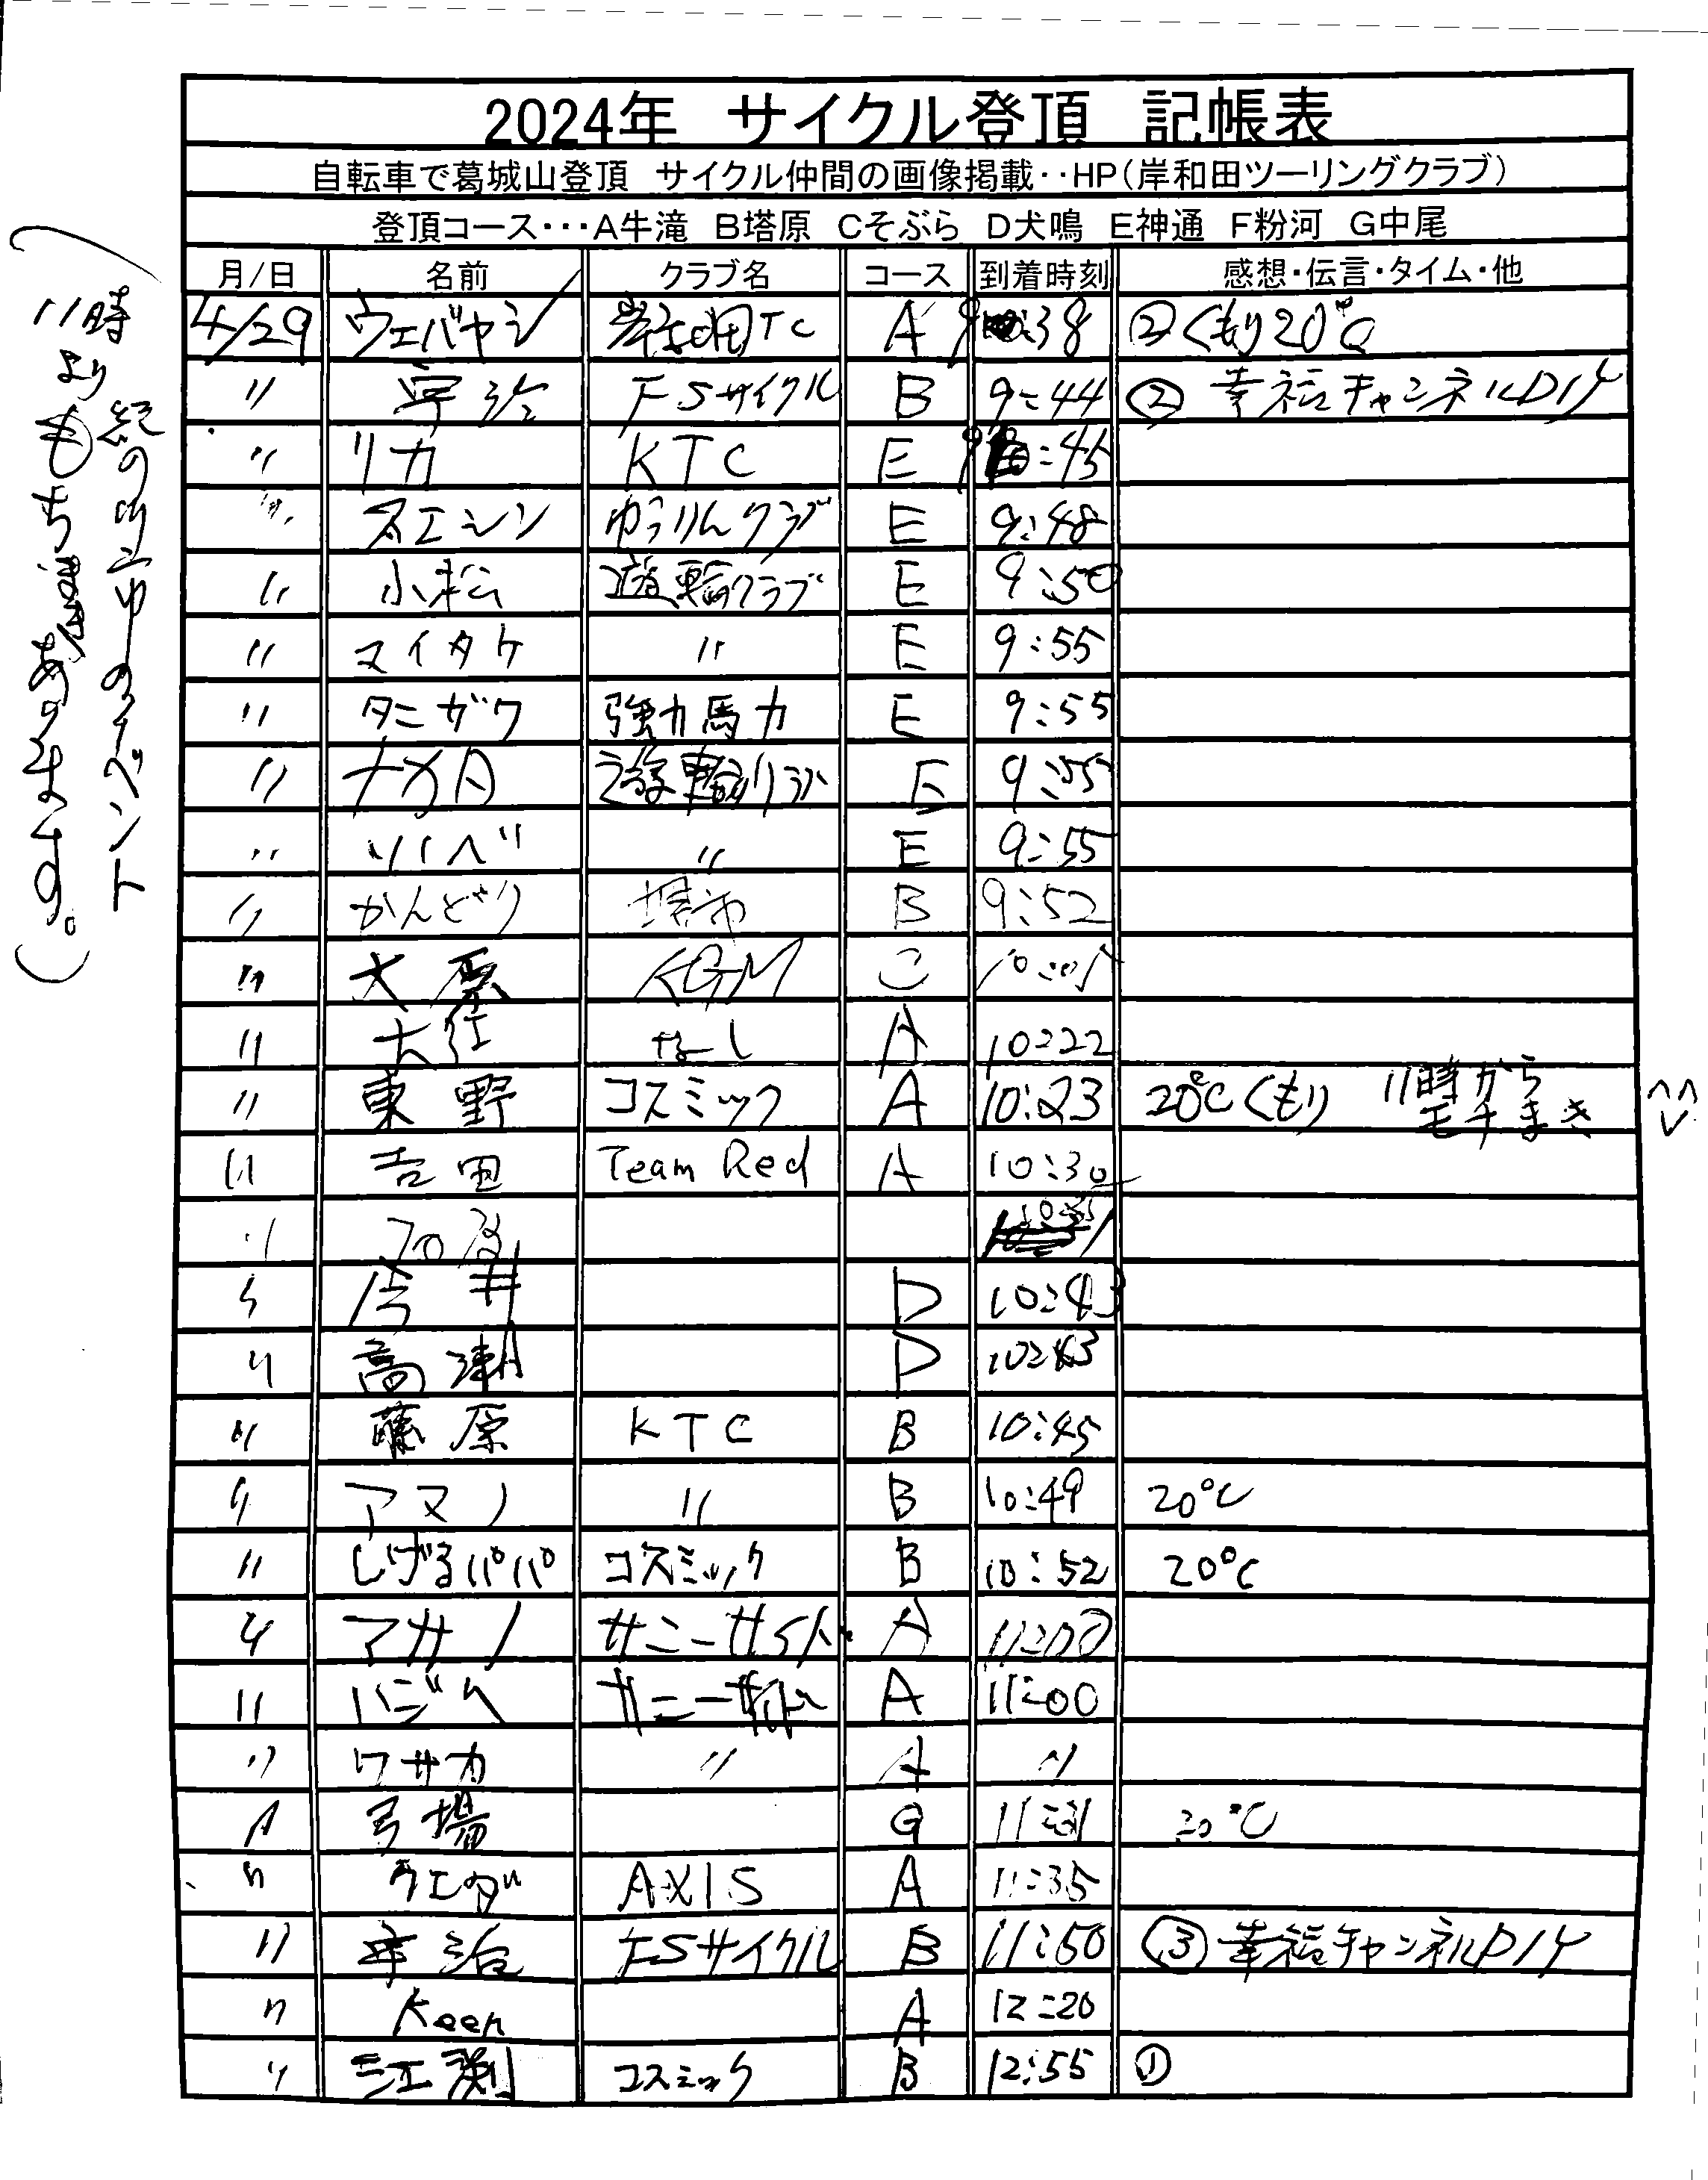 2024年 サイクル登頂 記帳表
自転車で葛城山登頂 サイクル仲間の画像掲載‥HP(岸和田ツーリングクラブ)
登頂コース･･･A牛滝 B塔原 Cそぶら D犬鳴 E神通 F粉河 G中尾
月/日 名前 クラブ名 コース 到着時刻 感想・伝言・タイム・他
4/29 ウエバヤシ 岸和田TC A 9:38 ② くもり20℃
〃 宇治 FSサイクル B 9:44 ② 幸福チャンネルDIY
〃 リカ KTC E 9:45
〃 スエシン ゆうりんクラブ E 9:48
〃 小松 遊輪クラブ E 9:50
〃 マイタケ 〃 E 9:55
〃 タニガワ 強力馬力 E 9:55
〃 ナカA 遊輪クラブ E 9:55
〃 ソノベ 〃 E 9:55
〃 かんどり 堺市 B 9:52
〃 大原 KGM C
〃 なし A 10:22
〃 東野 コスミック A 10:23 20℃くもり 11時から モチまき ^^
〃 吉田 Team Red A 10:30
〃
〃 今井 D 10:43
〃 高瀬 D 10:43
〃 藤原 KTC B 10:45
〃 アマノ 〃 B 10:49 20℃
〃 しげるパパ コスミック B 10:52 20℃
〃 アサノ サニーサイト A 11:00
〃 ハジメ サニーサイト A 11:00
〃 ワサカ 〃 A 〃
〃 弓場 G 11:31 20℃
〃 ウエダ AXIS A 11:35
〃 宇治 FSサイクル B 11:50 ③ 幸福チャンネルDIY
〃 Keen A 12:20
〃 コスミック B 12:55 ①
(
11時より
もちまきあります。)
紀の川市のイベント